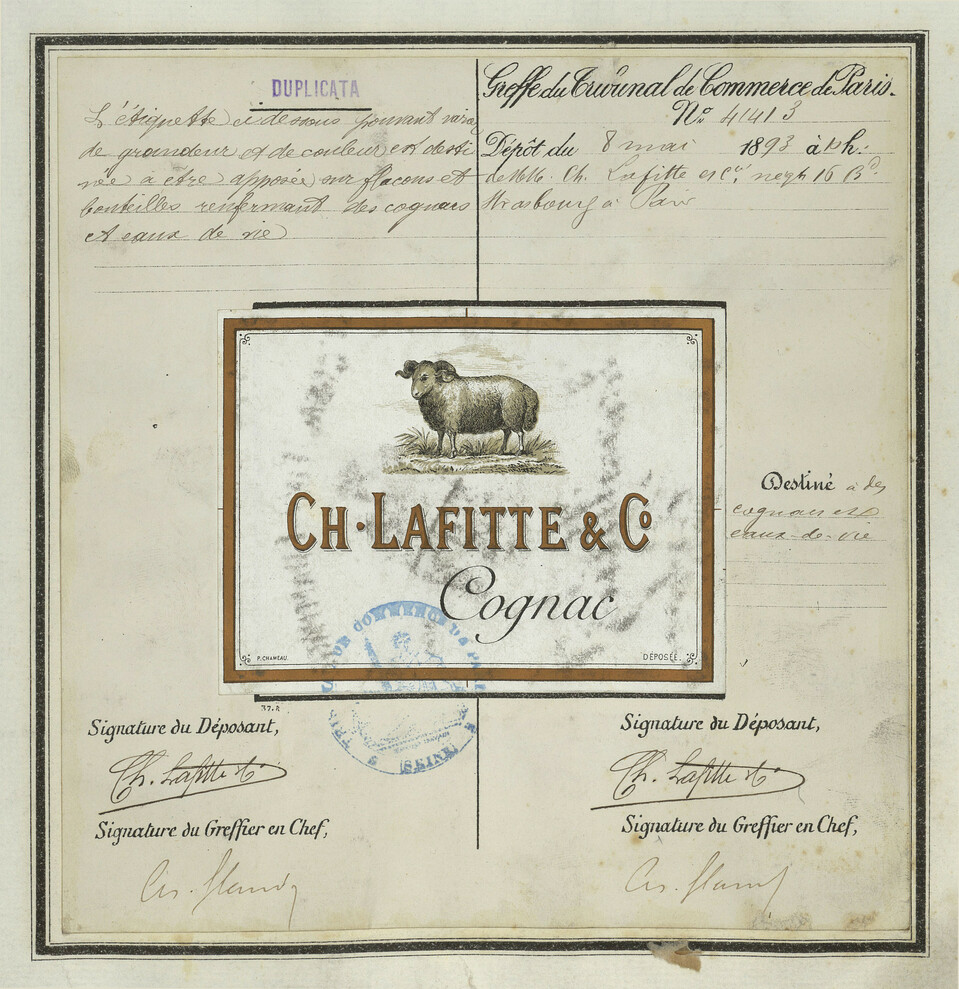 DUPLICATA
L'étiquette ci dessous pouvant varier
de grandeur et de couleur est desti
née à être apposée sur flacons et
bouteilles renfermant des cognacs
et eaux de vie
Greffe du Tribunal de Commerce de Paris.
No. 41413
Dépôt du 8 mai 1893 à h:
de MM. Ch. Lafitte et Cie. negts 16 Bd
Strasbourg à Paris
CH · LAFITTE & Co
Cognac
P. CHAMEAU.
DÉPOSÉE.
Destiné à des
cognacs et
eaux-de-vie
TRIB DE COMMERCE DE LA SEINE
37.R
Signature du Déposant,
Ch. Lafitte & Co
Signature du Greffier en Chef,
Signature du Déposant,
Ch. Lafitte & Co
Signature du Greffier en Chef,